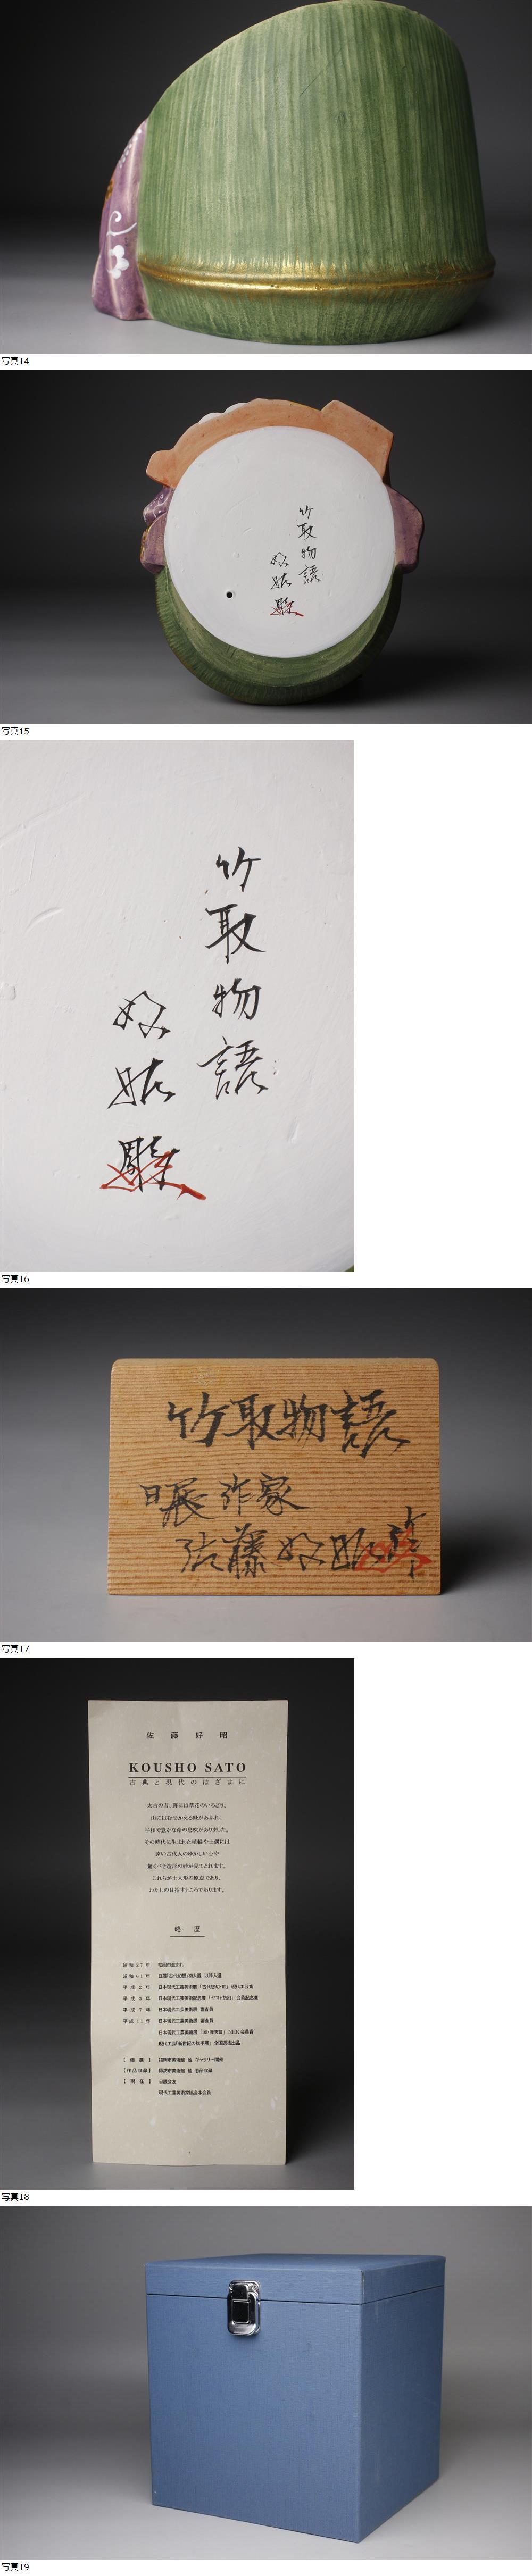 写真14
竹取物語
好昭
彫
写真15
竹取物語
好昭
彫
写真16
竹取物語
日展作家
佐藤好昭
写真17
佐藤好昭
KOUSHO SATO
古典と現代のはざまに
太古の昔、野には草花のいろどり、
山にはむせかえる緑があふれ、
平和で豊かな命の息吹がありました。
その時代に生まれた埴輪や土偶には
遠い古代人のゆかしい心や
驚くべき造形の妙が見てとれます。
これらが土人形の原点であり、
わたしの目指すところであります。
略歴
昭和27年 福岡市生まれ
昭和61年 日展「古代幻想」初入選 以降入選
平成2年
平成3年
平成7年 日本現代工芸美術展 審査員
平成11年 日本現代工芸美術展 審査員
【個展】 福岡市美術館 他 ギャラリー開催
【作品収蔵】
【現在】 日展会友
現代工芸美術家協会本会員
写真18
写真19